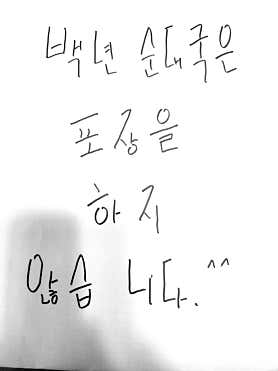 백년 순대국은
포장을
하지
않습니다.^^